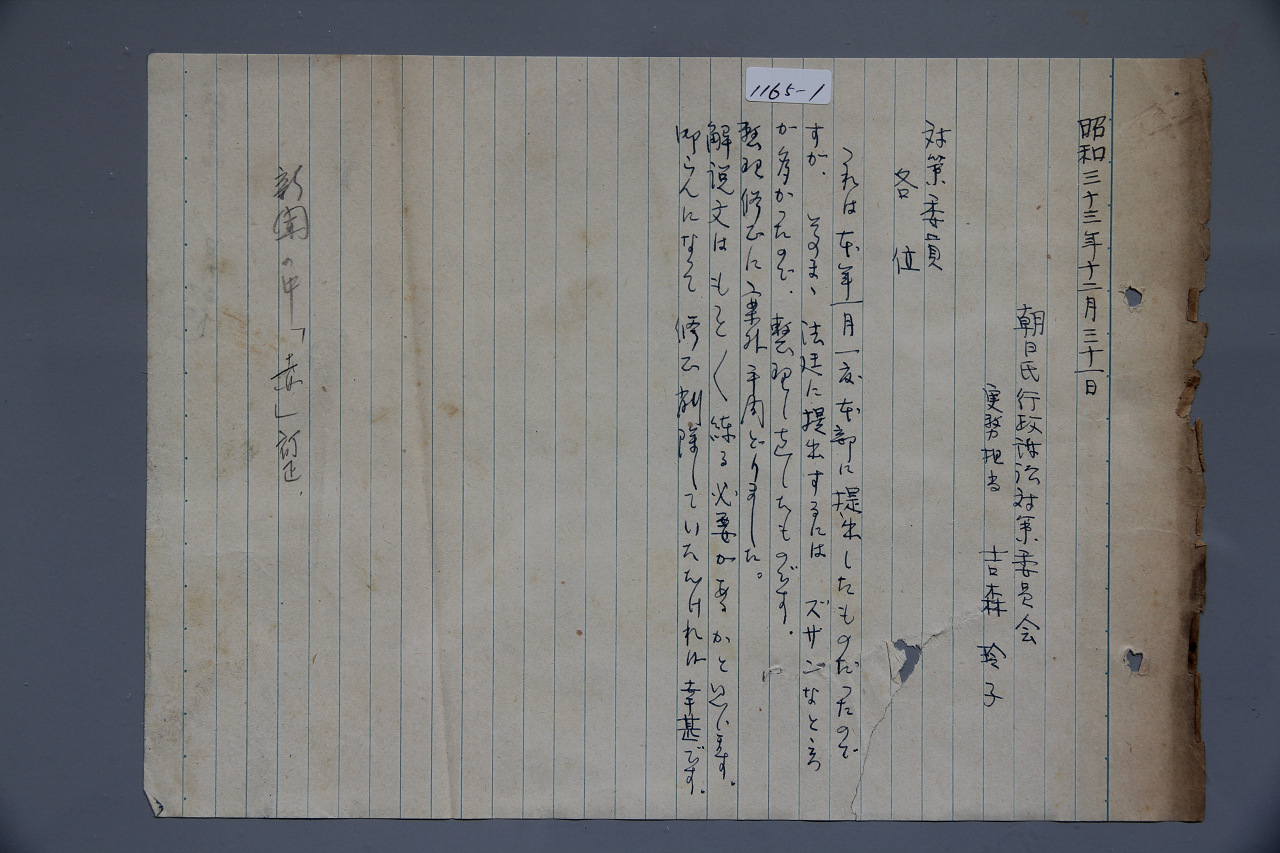 1165-1
昭和三十三年十二月三十一日
朝日氏行政訴訟対策委員会
実務担当 吉森 玲子
対策委員
各位
これは本年一月一度本部に提出したものだったので
すが、そのまゝ法廷に提出するには ズサンなところ
が多かったので、整理し直したものです。
整理修正に案外手間どりました。
解説文はもっと〱練る必要があるかと思います。
御らんになって 修正削除していただければ幸甚です。
新聞の中「赤」訂正.